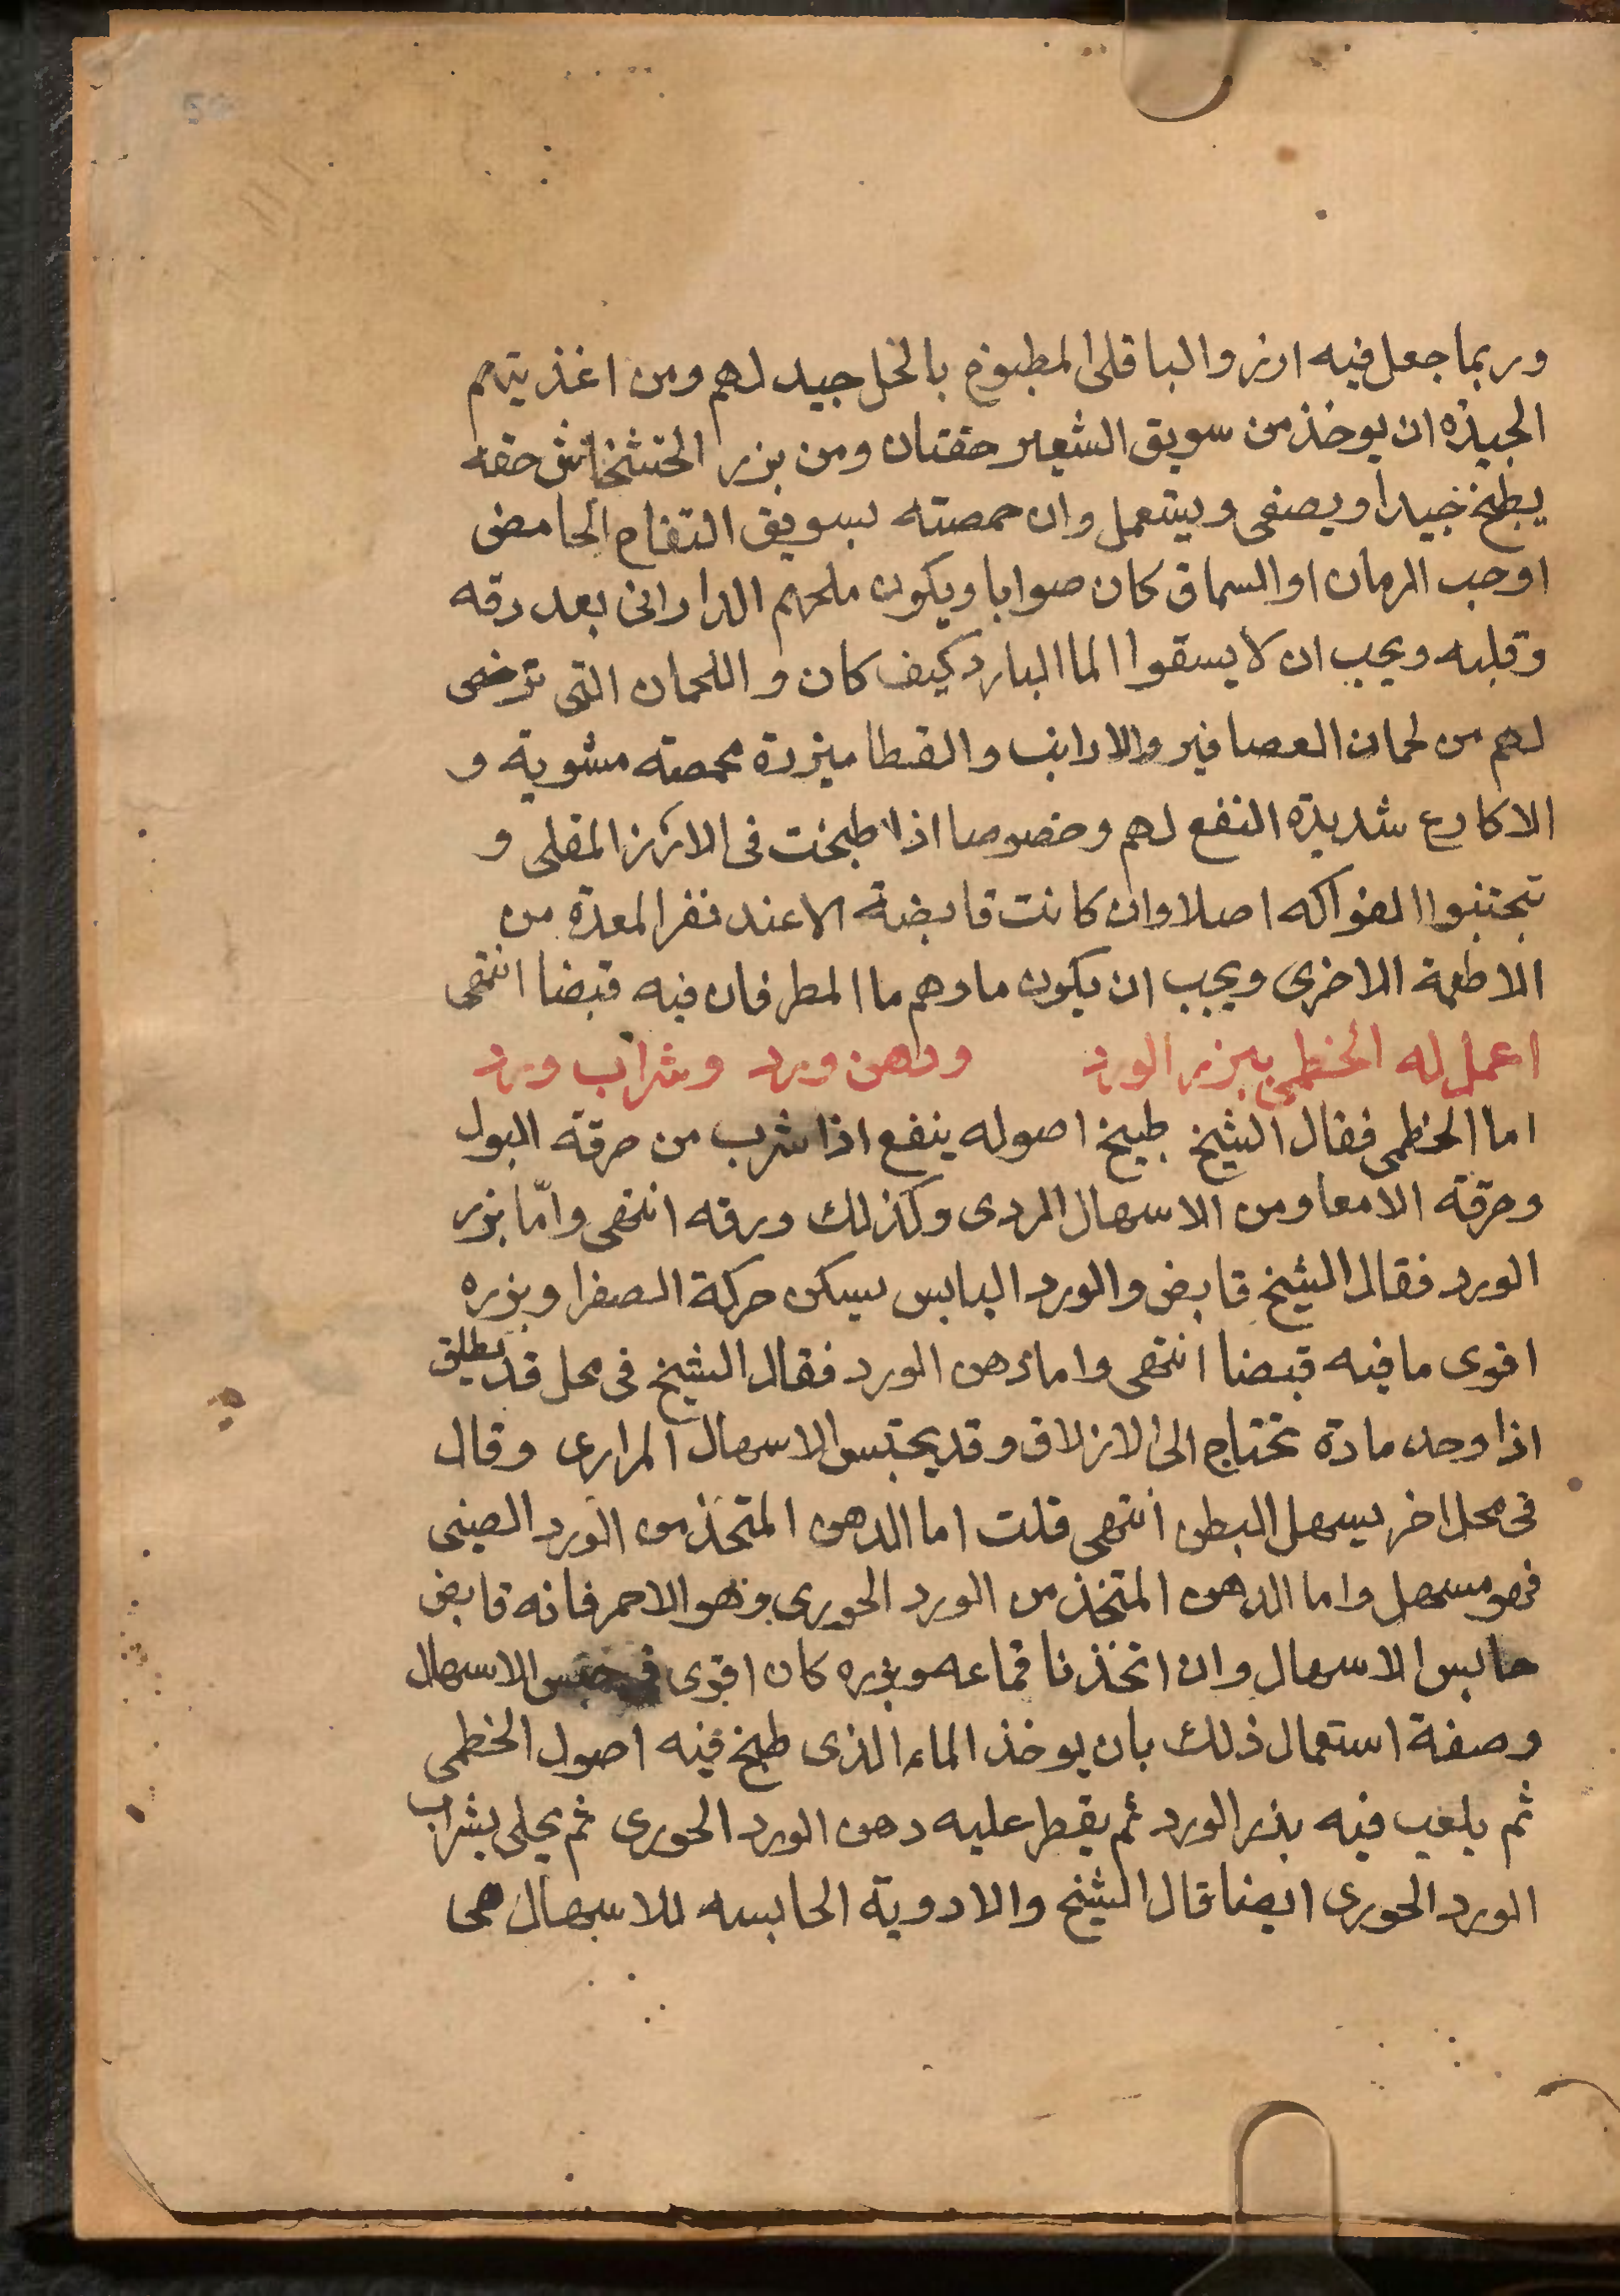 وربما جعل فيه ارز والباقلى المطبوخ بالخل جيد لهم ومن اغذيتهم
الجيده ان يوخذ من سويق الشعير حفنتان ومن بزر الخشخاش حفنه
يطبخ جيدا ويصفى ويستعمل وان حمصته بسويق التفاح الحامض
اوحب الرمان او السماق كان صوابا ويكون ملحهم الداراني بعد دقه
وقليه ويجب ان لا يسقوا الما البارد كيف كان واللحمان التي ترخص
لهم من لحمان العصافير والارانب والقطا مبزرة محمصته مشوية و
الاكارع شديدة النفع لهم وخصوصا اذا طبخت في الارز المقلى و
تجتنبوا الفواكه اصلا وان كانت قابضة الا عند نفر المعدة من
الاطعمة الاخرى ويجب ان يكون ماوهم ما المطر فان فيه قبضا انتهى
اعمل له الخطمي ببزر الورد ودهن ورد وشراب ورد
اما الخطمي فقال الشيخ طبيخ اصوله ينفع اذا شرب من حرقة البول
وحرقة الامعا ومن الاسهال الردى وكذلك ورقه انتهى وامّا بزر
الورد فقال الشيخ قابض والورد اليابس يسكن حركة الصفرا وبزره
اقوى ما فيه قبضا انتهى واما دهن الورد فقال الشيخ في محل قد يطلق
اذا وجد مادة تحتاج الى الازلاق وقد يحتبس الاسهال المرارى وقال
في محل اخر يسهل البطن انتهى قلت اما الدهن المتخذ من الورد الصيني
فهو مسهل واما الدهن المتخذ من الورد الحورى وهو الاحمر فانه قابض
حابس الاسهال وان اتخذنا قماعه وبزره كان اقوى في حبس الاسهال
وصفة استعمال ذلك بان يوخذ الماء الذى طبخ فيه اصول الخطمي
ثم يلعب فيه بذر الورد ثم يقطر عليه دهن الورد الحورى ثم يحلى بشراب
الورد الحورى ايضا قال الشيخ والادوية الحابسه للاسهال هى